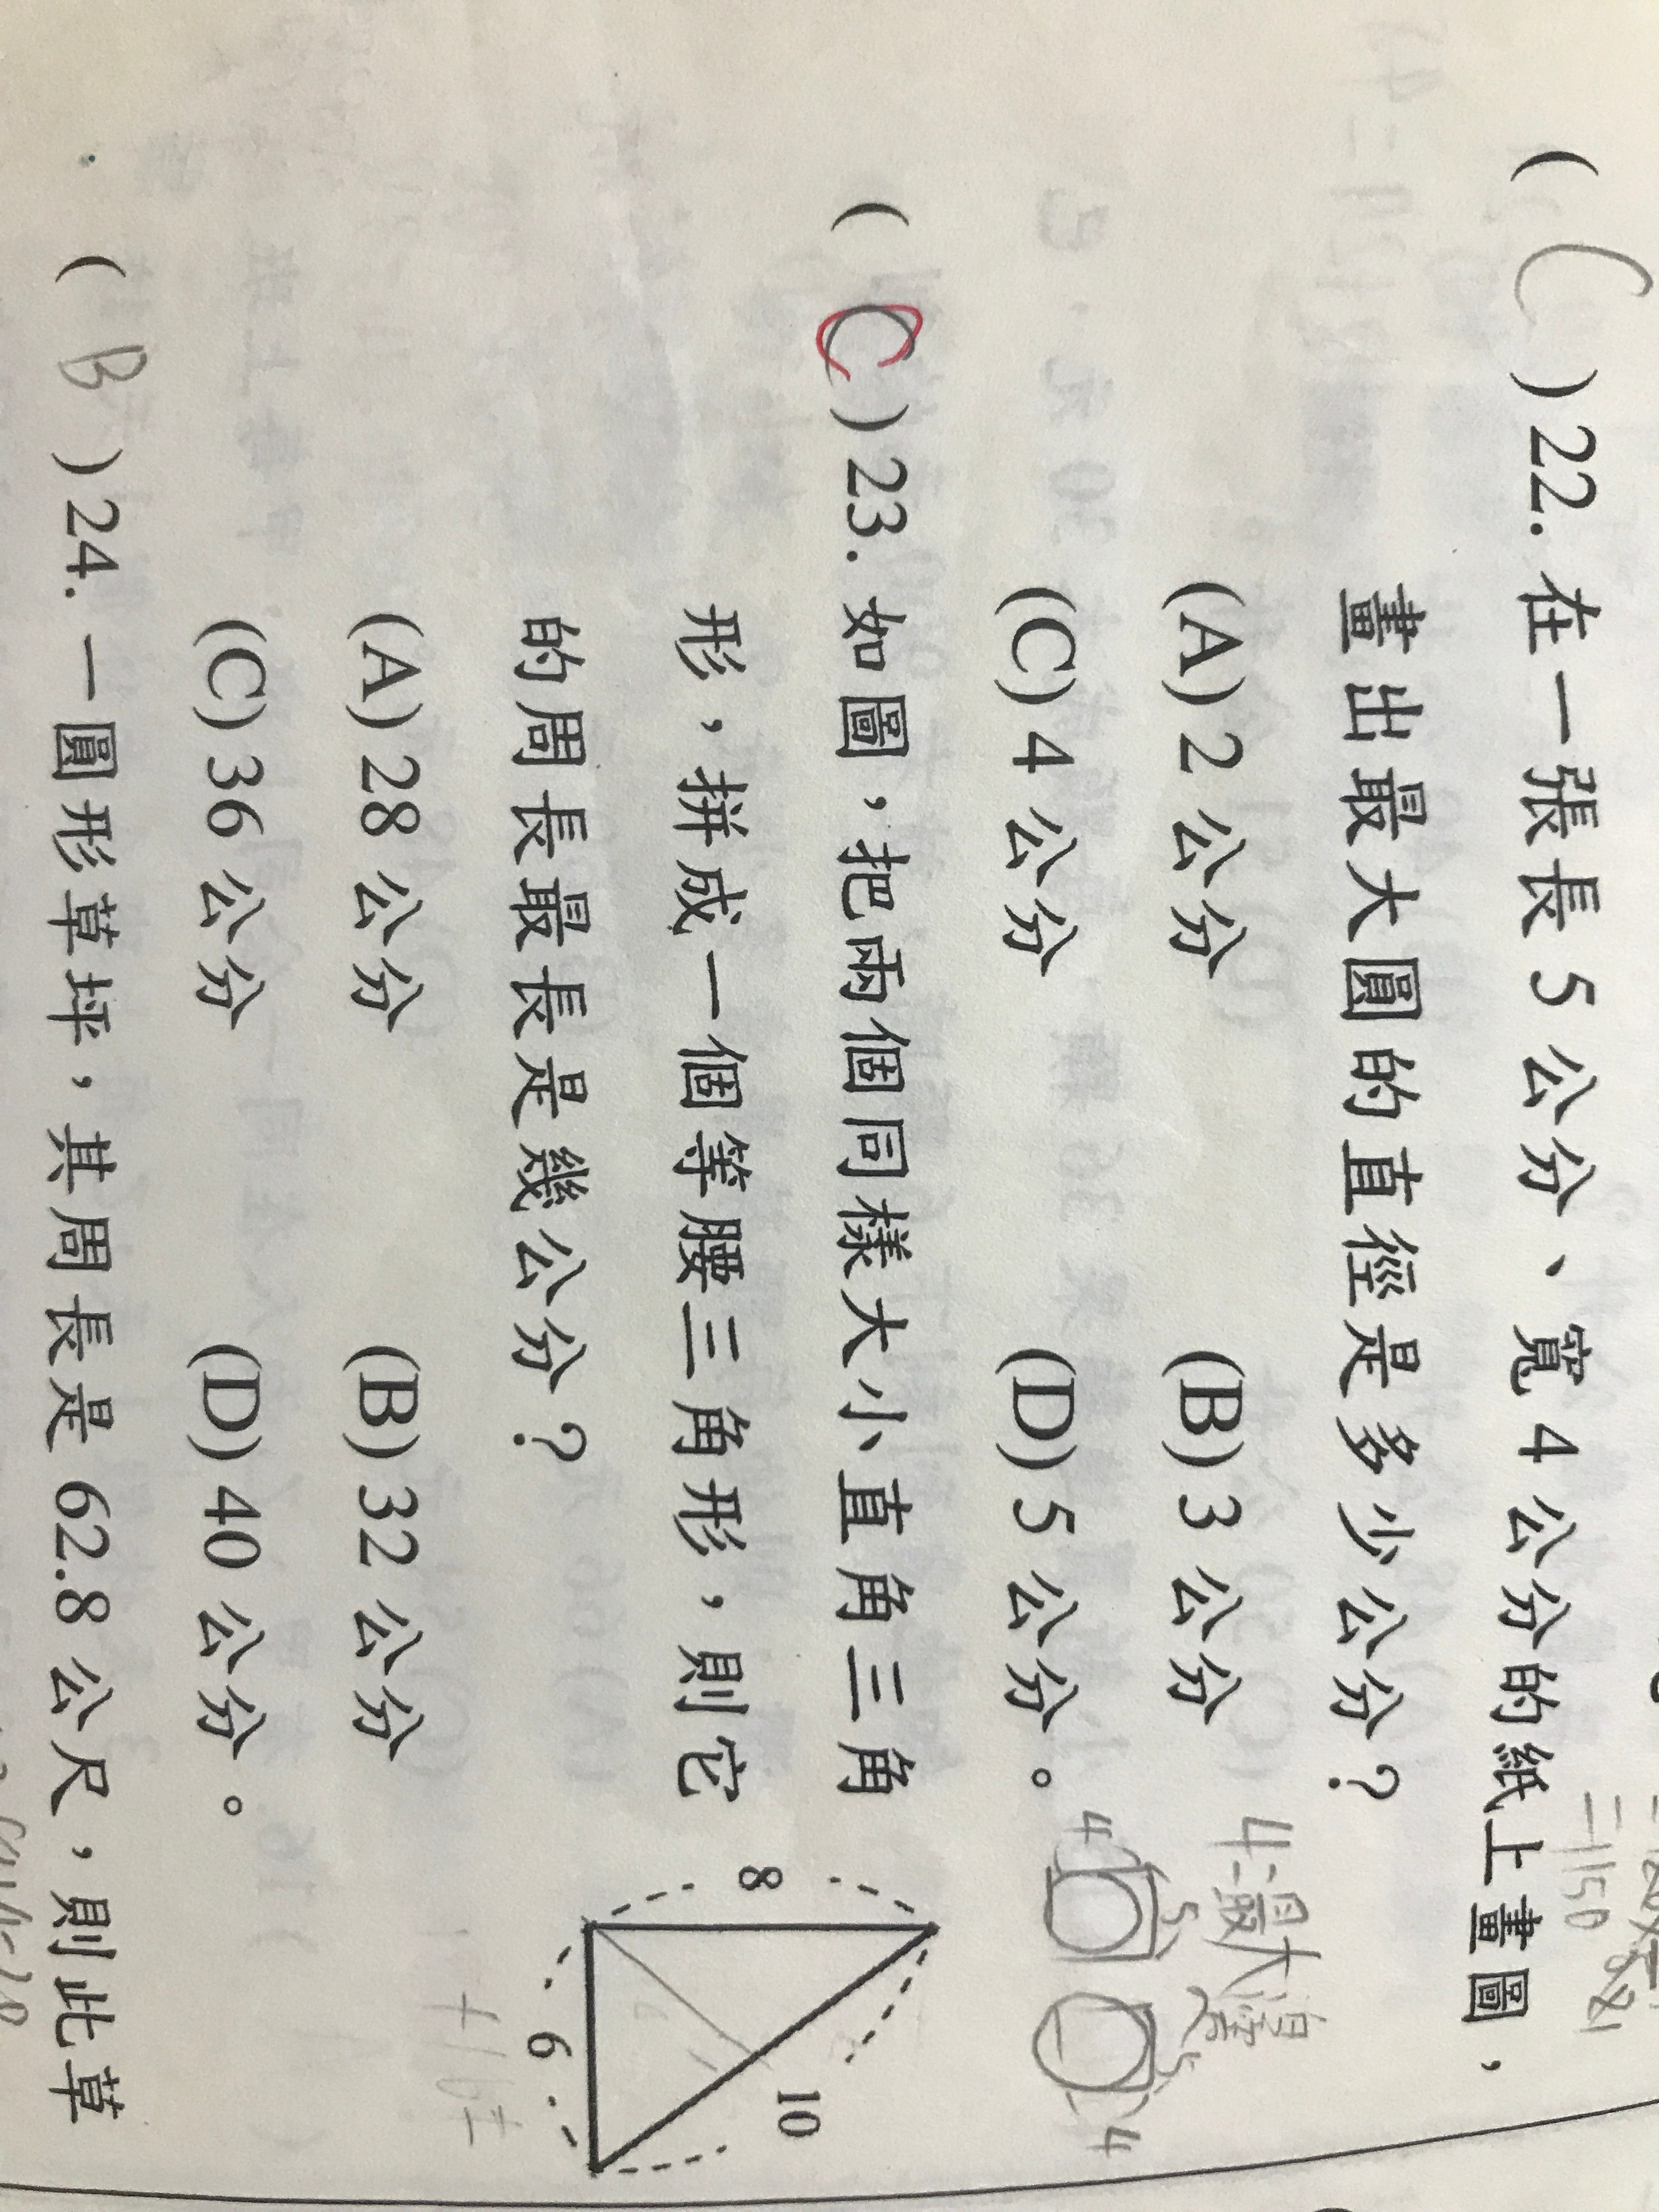 ( C ) 22. 在一張長 5 公分、寬 4 公分的紙上畫圖，
畫出最大圓的直徑是多少公分？
(A) 2 公分 (B) 3 公分
(C) 4 公分 (D) 5 公分。
4:最大寬
4 5 5 4
( C ) 23. 如圖，把兩個同樣大小直角三角
形，拼成一個等腰三角形，則它
的周長最長是幾公分？
8 10 6
(A) 28 公分 (B) 32 公分
(C) 36 公分 (D) 40 公分。
( B ) 24. 一圓形草坪，其周長是 62.8 公尺，則此草